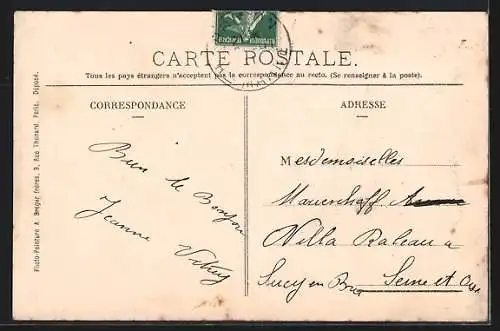 CARTE POSTALE.
Tous les pays étrangers n'acceptent pas la correspondance au recto. (Se renseigner à la poste).
CORRESPONDANCE
Bien le Bonjour
Jeanne Vitry
ADRESSE
Mesdemoiselles
Villa Rameau
Sucy en Brie Seine et Oise
Photo-Peinture A. Breger frères, 9, Rue Thénard, Paris. Déposé.